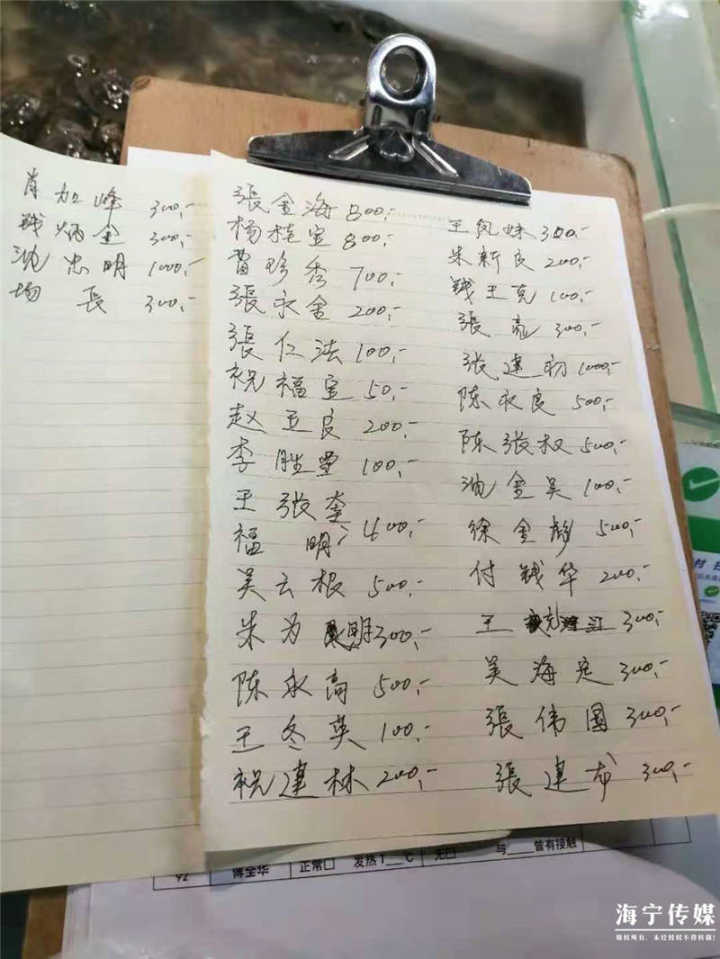 肖加峰 300,-
钱炳金 300,-
沈忠明 1000,-
杨 長 300,-
張金海 800,-
杨桂宝 800,-
曹珍秀 700,-
張永金 200,-
張仁法 100,-
祝福宝 50,-
赵玉良 200,-
李胜堂 100,-
王张奎
福明 400,-
吴云根 500,-
朱为明 300,-
陈永高 500,-
王冬英 100,-
祝建林 200,-
王凤妹 300,-
朱新良 200,-
钱玉克 100,-
張亮 300,-
张建初 1000,-
陈永良 500,-
陈张权 500,-
沈金吴 100,-
徐金彪 500,-
付钱华 200,-
王 江 300,-
吴海定 300,-
張伟国 300,-
張建龙 300,-
92 傅全华 正常口 发热T__℃ 无口 与 曾有接触
海宁传媒
版权所有，未经授权不得转载！